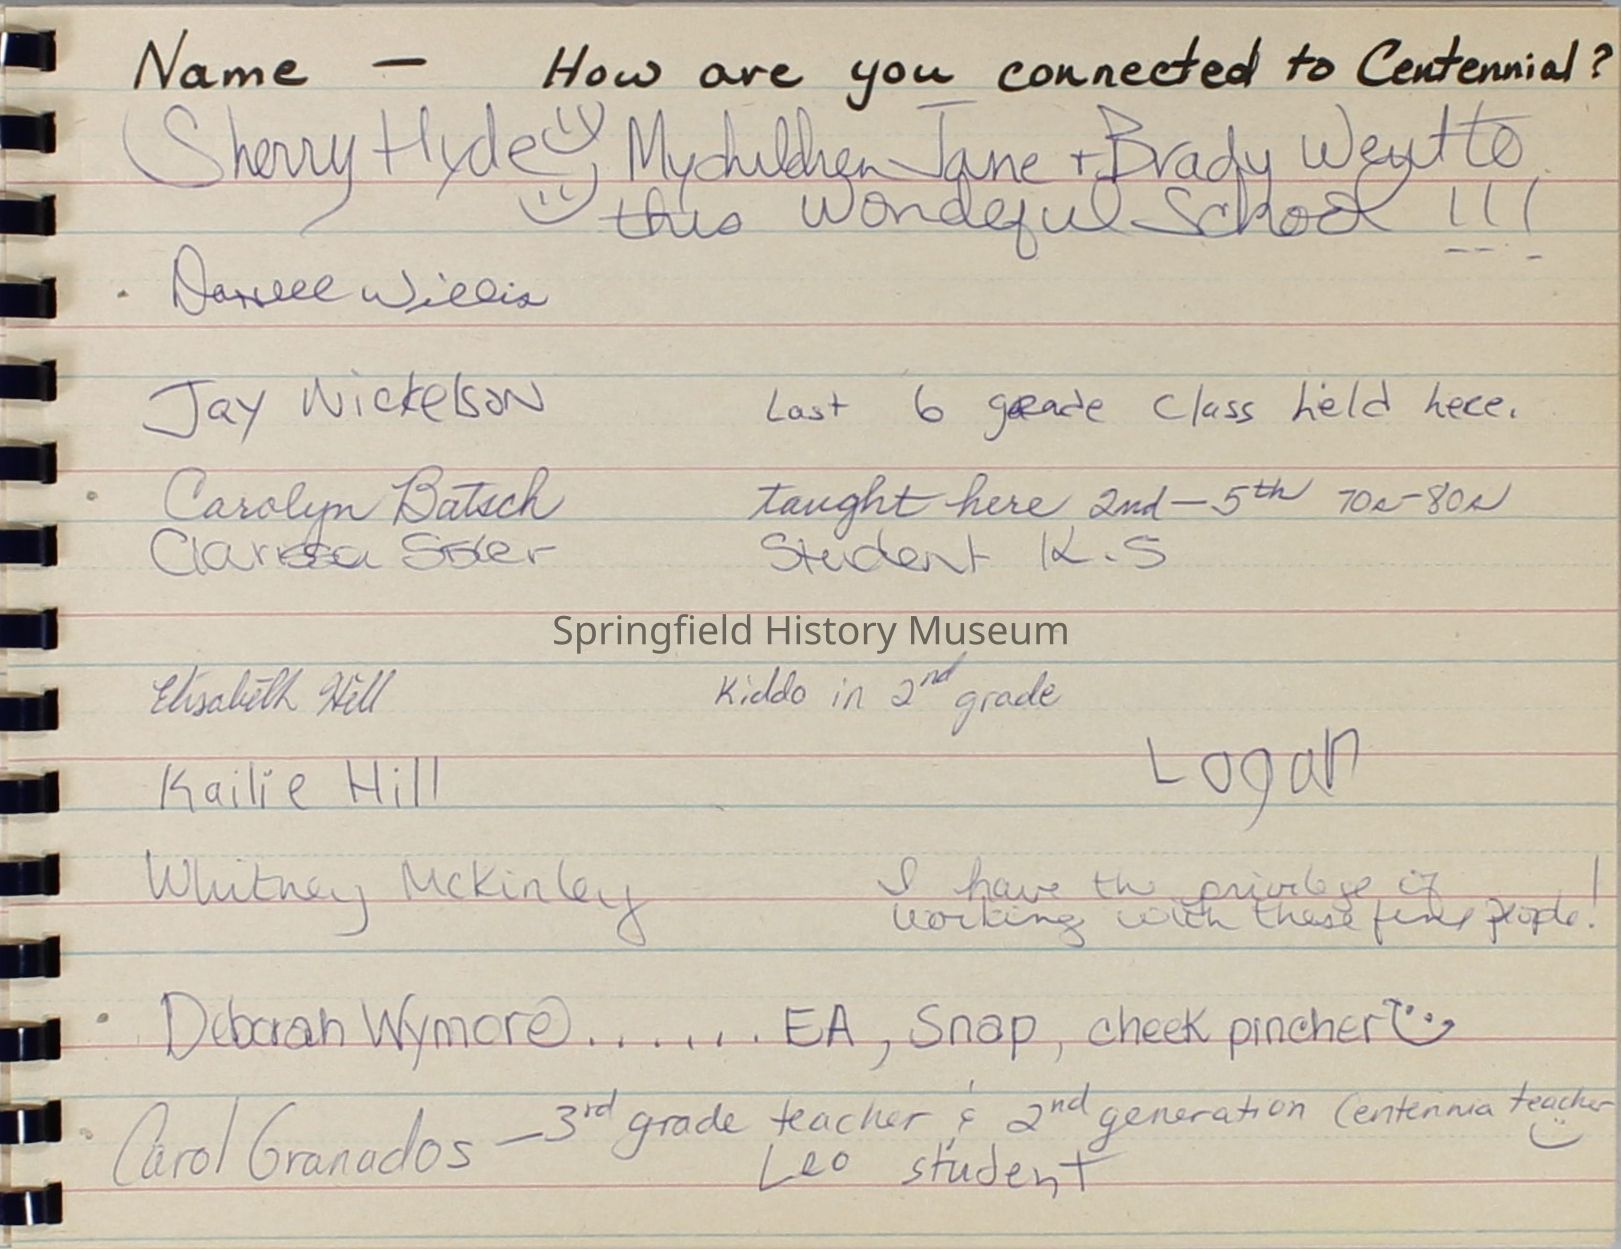 Name - How are you connected to Centennial?
Sherry Hyde My children Jane + Brady Went to
this Wondeful School !!!
Darrell Willis
Jay Nickelson Last 6 grade class held here.
Carolyn Batsch taught here 2nd-5th 70s-80s
Clarissa Student K-5
Springfield History Museum
Elisabeth Hill Kiddo in 2nd grade
Logan
Kailie Hill
Whitney McKinley I have the privilege of
working with these fine people!
Deborah Wymore....... EA, Snap, cheek pincher
Carol Granados - 3rd grade teacher & 2nd generation Centennia teacher
Leo student